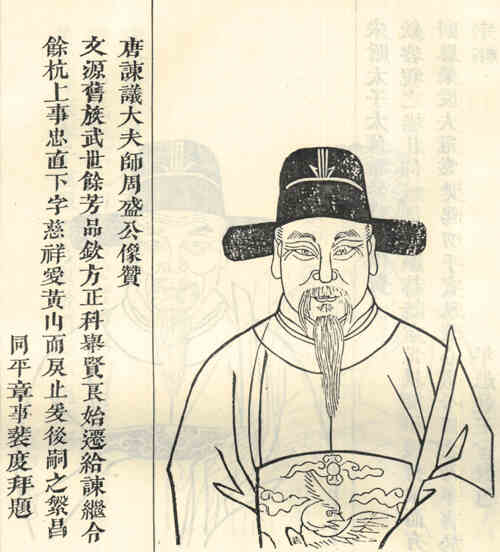 唐諫議大夫師周盛公像贊
文源舊族武世餘芳品欽方正科舉賢良始遷給諫繼令
餘杭上事忠直下字慈祥愛黃山而戾止爰後嗣之繁昌
同平章事裴度拜題